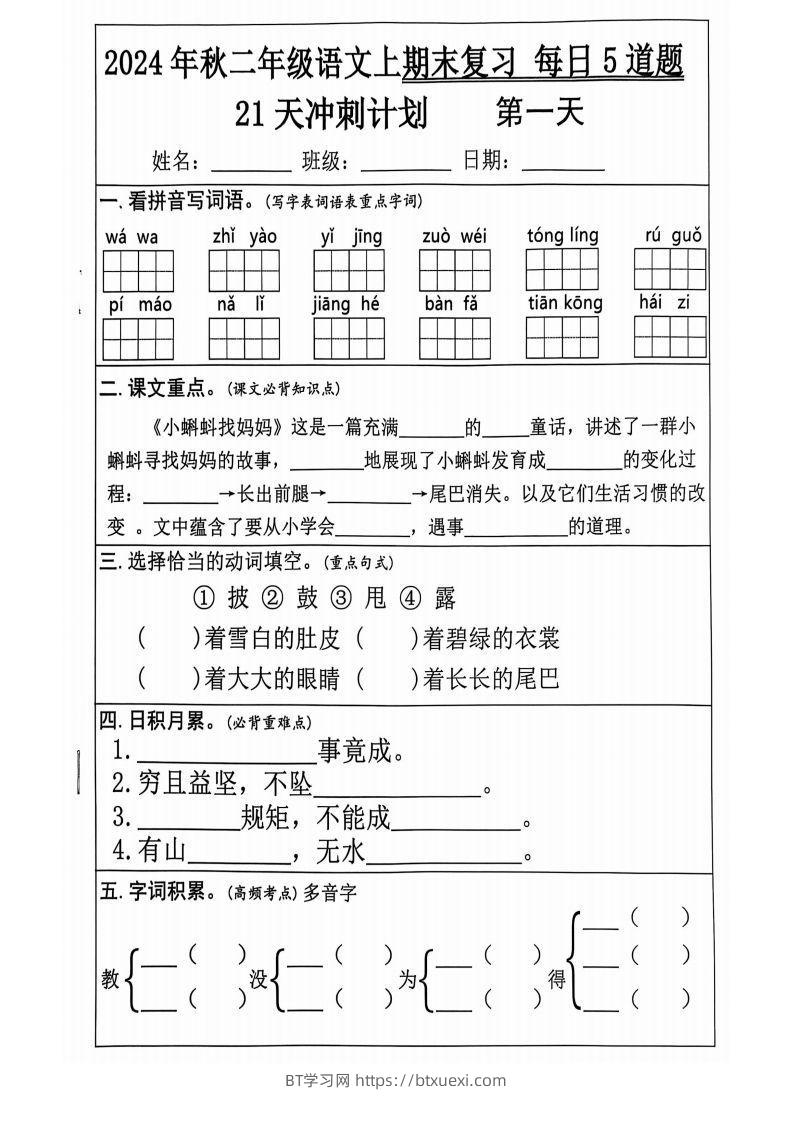 2024年秋二年级语文上期末复习 每日5道题
21天冲刺计划 第一天
姓名：______ 班级：______ 日期：______
一. 看拼音写词语。(写字表词语表重点字词)
wá wa zhǐ yào yǐ jīng zuò wéi tóng líng rú guǒ
pí máo nǎ lǐ jiāng hé bàn fǎ tiān kōng hái zi
二. 课文重点。(课文必背知识点)
《小蝌蚪找妈妈》这是一篇充满______的____童话，讲述了一群小
蝌蚪寻找妈妈的故事，______地展现了小蝌蚪发育成______的变化过
程：______→长出前腿→______→尾巴消失。以及它们生活习惯的改
变 。文中蕴含了要从小学会______，遇事________的道理。
三. 选择恰当的动词填空。(重点句式)
① 披 ② 鼓 ③ 甩 ④ 露
(    )着雪白的肚皮 (    )着碧绿的衣裳
(    )着大大的眼睛 (    )着长长的尾巴
四. 日积月累。(必背重难点)
1.____________事竟成。
2.穷且益坚，不坠____________。
3._______规矩，不能成_________。
4.有山_______，无水___________。
五. 字词积累。(高频考点) 多音字
___(    )
___(    ) ___(    ) ___(    ) ___(    )
教 没 为 得
___(    ) ___(    ) ___(    ) ___(    )
BT学习网 https://btxuexi.com